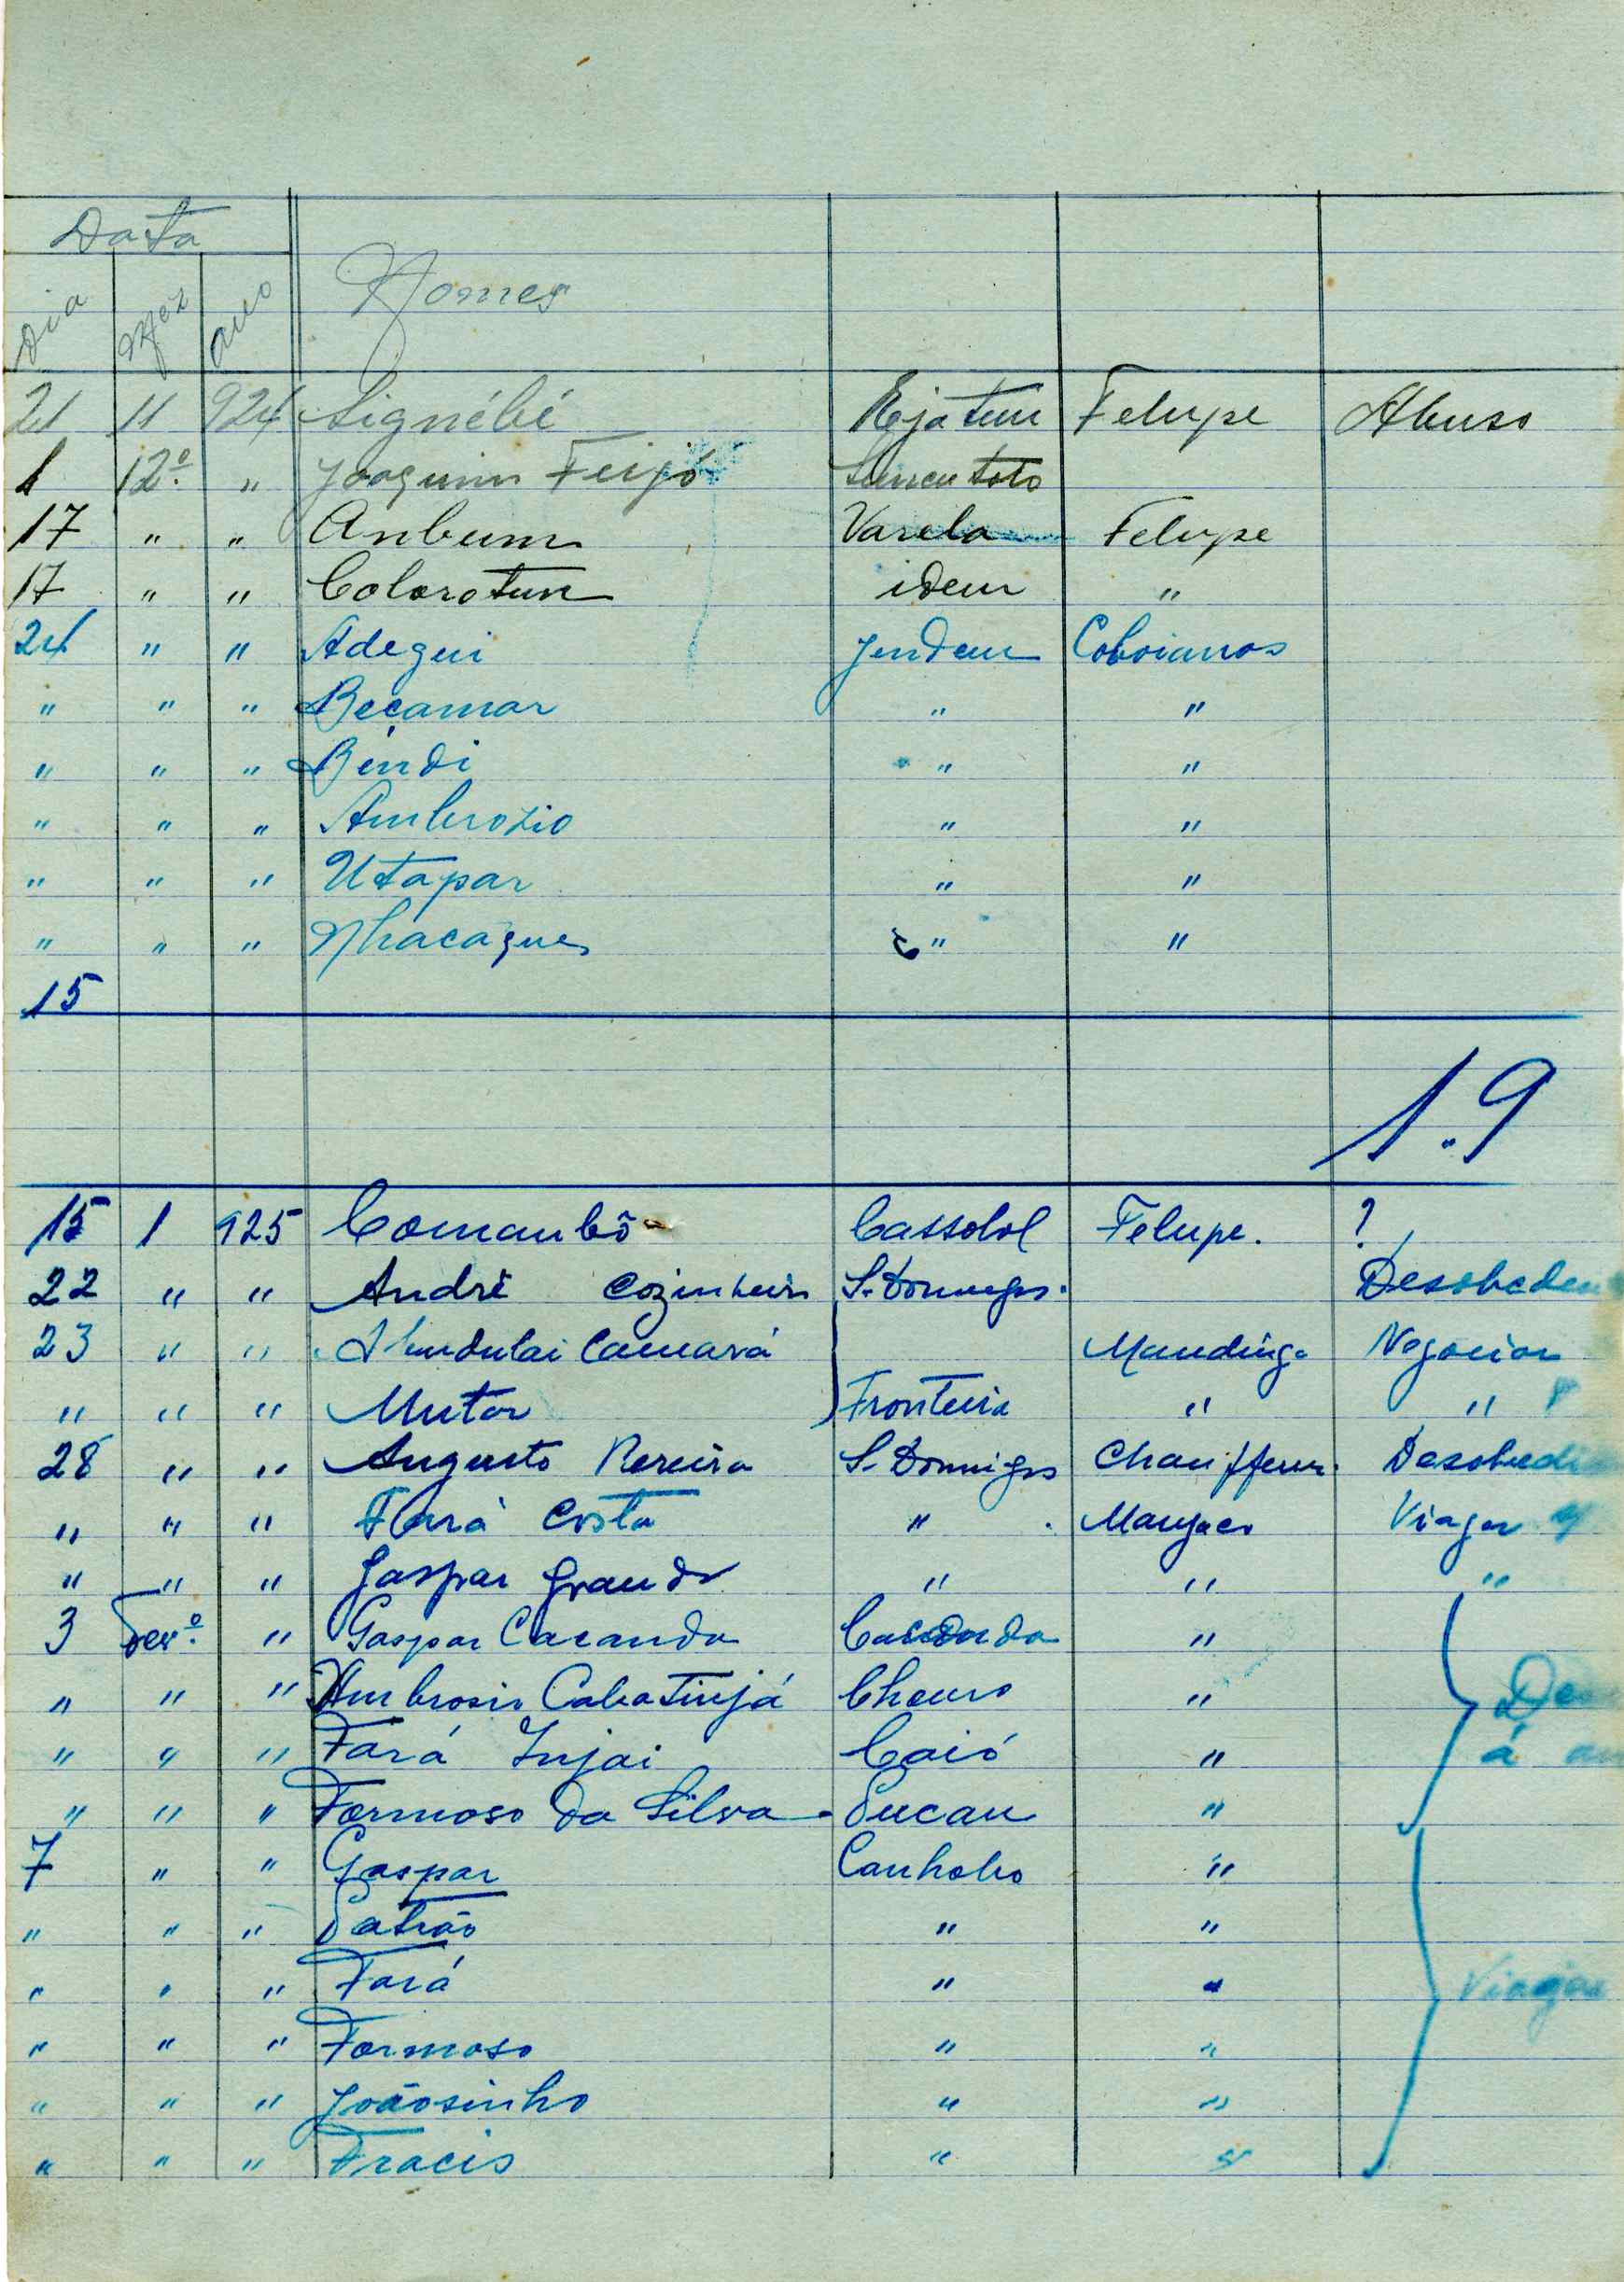 Data
Dia Mez Ano Nomes
21 11 924 Signébé Ejatem Felupe Abuso
1 12º " Joaquim Feijó Suncutoto
17 " " Anbum Varela Felupe
17 " " Colorotum idem "
24 " " Adegui Jendem Coboianos
" " " Becamar " "
" " " Bendi " "
" " " Ambrozio " "
" " " Utapar " "
" " " Nhacagues " "
15
1.9
15 1 925 Comanbô Cassolol Felupe. ?
22 " " André Cozinheiro S. Domingos. Desobedien
23 " " Abudulai Camará Mandinga Negocian
" " " Mutar Fronteira " "
28 " " Augusto Pereira S. Domingos Chauffeur. Desobedi
" " " Fará Costa " Manjaco Viajar
" " " Gaspar Grande " " "
3 Fevº " Gaspar Cacanda Cacanda "
" " " Ambrosio Cabatinjá Churo " Des
" " " Fará Injai Caió " á
" " " Formoso da Silva Pucau "
7 " " Gaspar Canhobo "
" " " Patrão " "
" " " Fará " " Viajar
" " " Formoso " "
" " " Joãosinho " "
" " " Fracis " "